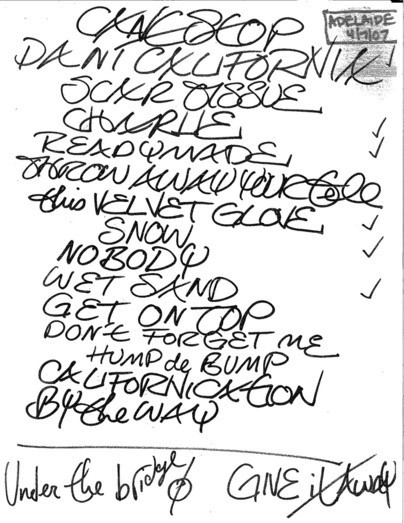 CAN'T STOP
ADELAIDE
4/7/07
DANI CALIFORNIA
SCAR TISSUE
CHARLIE
READYMADE
THROW AWAY YOUR tele
this VELVET GLOVE
SNOW
NOBODY
WET SAND
GET ON TOP
DON't FORGET ME
HUMP de BUMP
CALIFORNICATION
BY the WAY
Under the bridge GIVE it AWAY